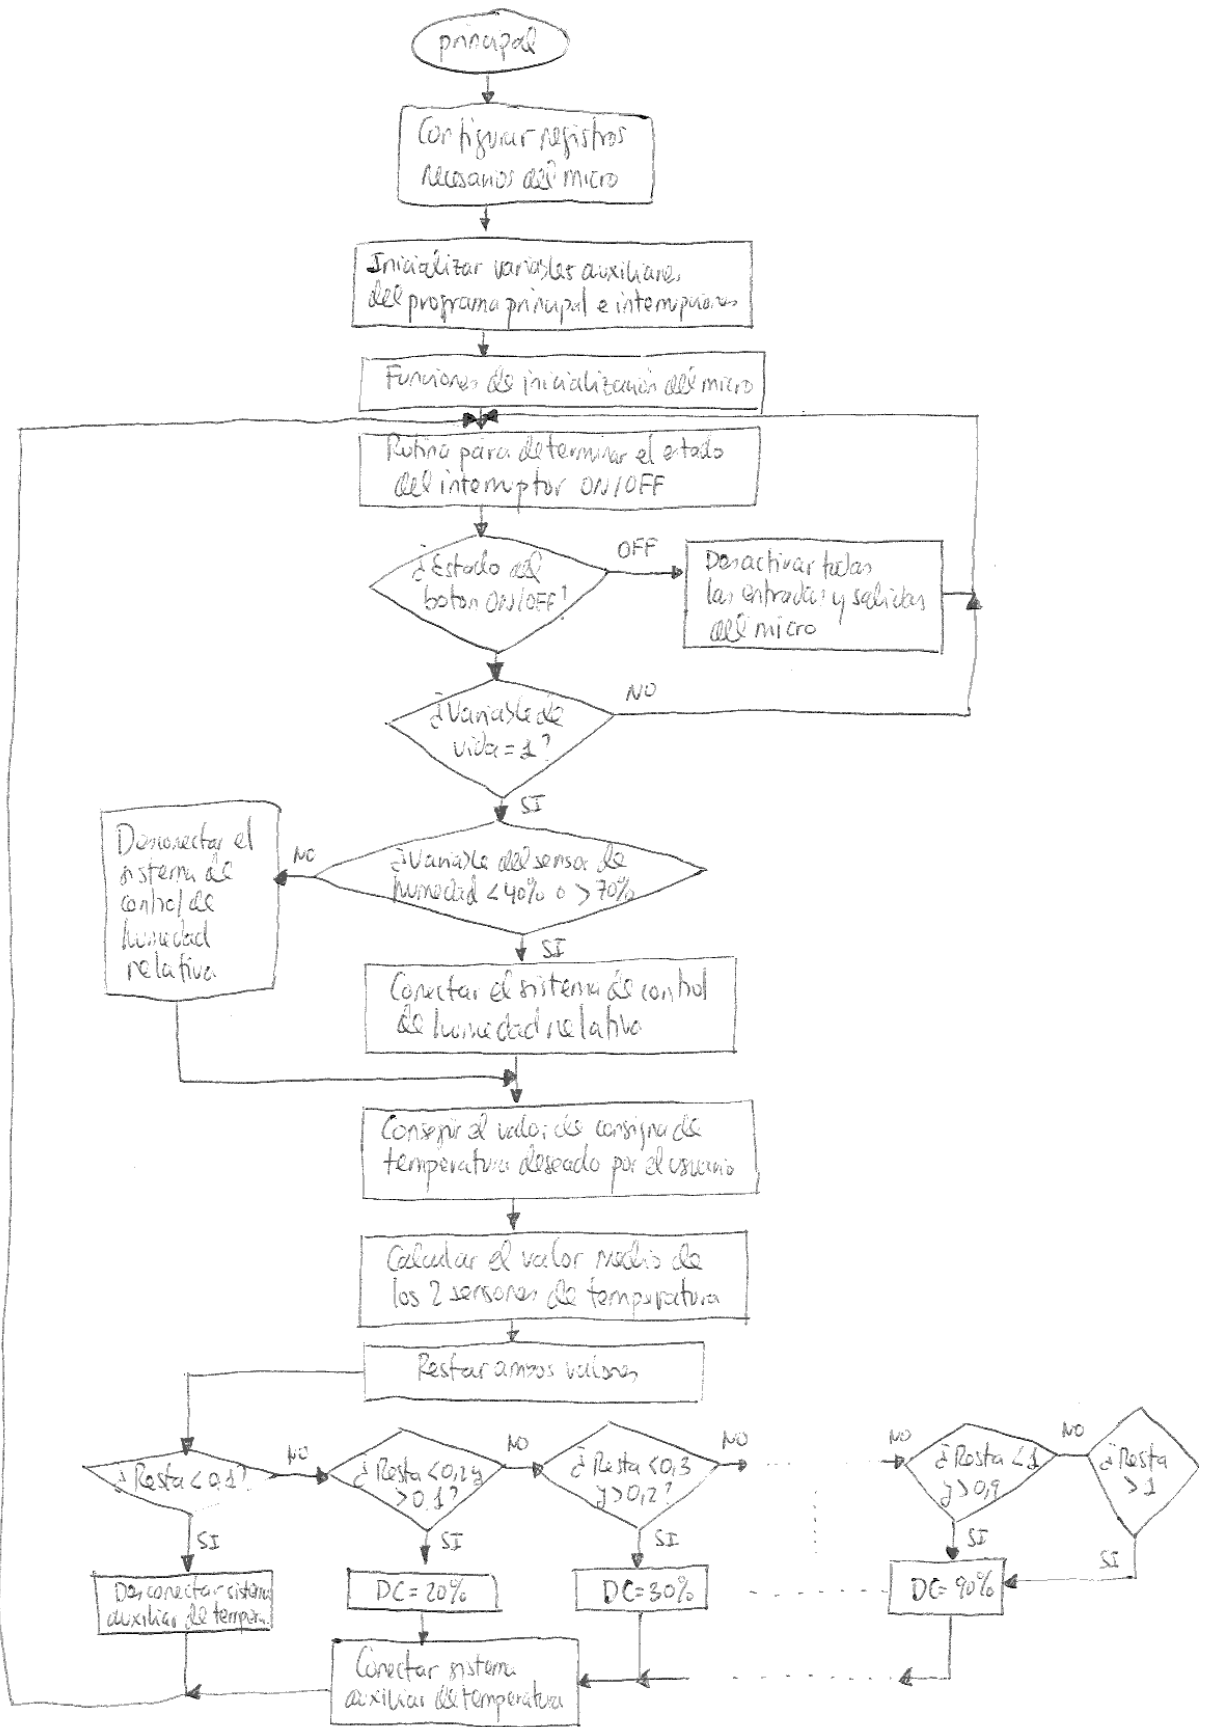 principal
Configurar registros
necesarios del micro
Inicializar variables auxiliares
del programa principal e interrupciones
Funciones de inicialización del micro
Rutina para determinar el estado
del interruptor ON/OFF
¿Estado del
boton ON/OFF?
OFF
Desactivar todas
las entradas y salidas
del micro
¿Variable de
vida = 1?
NO
SI
¿Variable del sensor de
humedad < 40% o > 70%
NO
Desconectar el
sistema de
control de
humedad
relativa
SI
Conectar el sistema de control
de humedad relativa
Conseguir el valor de consigna de
temperatura deseado por el usuario
Calcular el valor medio de
los 2 sensores de temperatura
Restar ambos valores
¿Resta < 0,1?
NO
¿Resta < 0,2 y
> 0,1?
NO
¿Resta < 0,3
y > 0,2?
NO
NO
¿Resta < 1
y > 0,9
NO
¿Resta
> 1
SI
SI
SI
SI
SI
Desconectar sistema
auxiliar de tempera.
DC = 20%
DC = 30%
DC = 90%
Conectar sistema
auxiliar de temperatura